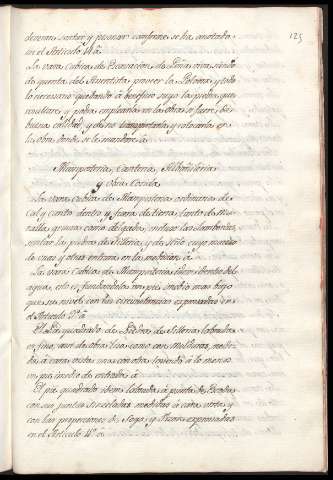 125
deveran sentar, y guarnir conforme se ha anotado
en el Articulo 4º â
La vara Cubica de Excavacion de Peña viva, siendo
de quenta del Assentista proveer la Polvora, y todo
lo necesario quedando â beneficio suyo la piedra, que
resultare, y podra emplearla en la obra si fuere de
buena calidad, y de no transportarla y colocarla en
la obra donde se le mandare â
Mamposteria, Canteria, Albañileria
y obra Cosida
La vara cubica de Mamposteria ordinaria de
Cal y canto dentro y fuera de tierra, tanto de Mu
ralla gruesa como delgada, incluso los
sentar la piedra de Silleria, y de Sillo cuyo macizo
de una y otra entrara en la medicion â
La vara Cubica de Mamposteria idem dentro del
agua, esto es fundandola un pie o medio mas bajo
que su nivel con las circunstancias expresadas en
el Articulo 2º â
El Pie quadrado de Piedra de Silleria labrada
en fino, assi de obra lisa como con Molduras, medi
da â cara vista una con otra, teniendo â lo menos
un pie y medio de entrada â
El pie quadrado idem labrada â punta de Escoda
con sus juntas sinceladas medidas â cara vista, y
con las proporciones de Soga, y Tizon expresadas
en el Articulo 4º â